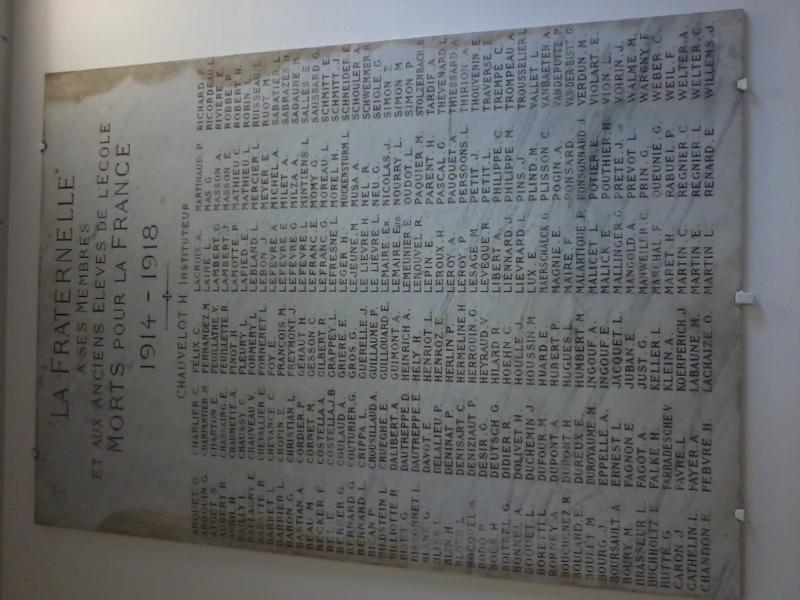 "LA FRATERNELLE"
A SES MEMBRES
ET AUX ANCIENS ELÈVES DE L'ÉCOLE
MORTS POUR LA FRANCE
1914 - 1918
CHAUVELOT H. INSTITUTEUR
ANQUET G.
ARDOUIN G.
AUGET S.
AUBERT R.
AVRIL H.
BAILLY J.
BALLAGNY E.
BARATTE R.
BARBIER L.
BARON G.
BASTIAN A.
BEAU M.
BECKER F.
BELL E.
BERGER G.
BERNARD G.
BERNARD L.
BLANC G.
BODO P.
BOES H.
BONNEL A.
BOQUET A.
BORETTI L.
BORNEY A.
BOUCHENEZ R.
BOULARD E.
BOULIT M.
BOURG J.
BOURSAULT A.
BOURY M.
BRASSEUR L.
BUCHHOLTZ E.
BUTTE G.
CARON J.
CATHELIN L.
CHANDON E.
CHARLIER C.
CHARPANTIER M.
CHARTON E.
CHASSAING E.
CHAUMETTE A.
CHAUSSY C.
CHAUVEAU V.
CHEVALLIER E.
CHOPIN E.
CHRISTIAN L.
CORDIER P.
CORNET M.
COSTELLA A.
COSTELLA J.B.
COULAUD A.
COUTURIER G.
CRIPPA L.
CROUSILLAUD A.
CRUEGHE E.
DALIBERT A.
DAUTREPPE D.
DAUTREPPE E.
DAVOT E.
DELAHEU P.
DENINAT P.
DENISART C.
DENIZIAUT P.
DESIR G.
DEUTSCH G.
DIDIER R.
DOLVET H.
DUCHEMIN J.
DUFOUR M.
DUPONT A.
DUPONT H.
DUREUX E.
DUROYAUME M.
EPPELLE A.
ERNEST L.
FAGNON E.
FAGOT A.
FALKE H.
FARRADESCHE V.
FAYRE L.
FAYER A.
FEBVRE H.
FELIX C.
FERNANDEZ M.
FEUILLATRE V.
FEUILLETTE R.
FINOT H.
FLEURY J.
FORMERY L.
FORNERET L.
FOY E.
FRANÇOIS M.
FREYMONT J.
GEHAUT H.
GESSON C.
GILBERT G.
GRAPPEY L.
GRIERE E.
GROS G.
GUERELLE J.
GUILLAUME P.
GUILLOUARD E.
GUIMONT A.
HEINRICH A.
HELY H.
HENRIOT L.
HENROZ E.
HERLIN P.
HERMANT R.
HERMELINE H.
HERROUIN G.
HEYRAUD V.
HILARD R.
HOEHN C.
HOLLE J.
HOUSSIN M.
HUARD E.
HUBERT P.
HUGUES L.
HUMBERT M.
INGOUF A.
INGOUF E.
JACQUET L.
JUBAN E.
JUST G.
KELLER L.
KLEIN A.
KOERPERICH J.
LABAUNE M.
LACHAIZE O.
LACROIX A.
LAINE L.
LAMBERT G.
LAMBERT J.
LAMOTTE P.
LAPIED E.
LEBLAND L.
LEBON J.
LEFEVRE A.
LEFEVRE E.
LEFEVRE G.
LEFEVRE L.
LEFRANC E.
LEFRANC G.
LEFRESNE L.
LEGER H.
LEJEUNE J.
LELIEVRE H.
LE LIEVRE L.
LEMAIRE ER.
LEMAIRE EUG.
LEMEUNIER E.
LENOUVEL R.
LEPIN E.
LEROUX H.
LEROY H.
LEROY P.
LESAGE M.
LEVÊQUE R.
LIBERT A.
LIENNARD J.
LOUVARD L.
LUX E.
MAERSCHALCK G.
MAGNIE E.
MAIRE F.
MALARTIQUE P.
MALICET L.
MALICK E.
MALINGER G.
MANGOLD J.
MANWEILER C.
MARCHAL F.
MARET H.
MARTIN C.
MARTIN E.
MARTIN L.
MARTINAUD P.
MAS E.
MASSON A.
MASSON E.
MATHIEU C.
MATHIEU L.
MERCIER L.
MEYER E.
MICHEL A.
MILET A.
MILZA A.
MINTIENS L.
MOMY G.
MOREAU L.
MOREL H.
MUCKENSTURM L.
MUSA A.
NAEL R.
NEU G.
NICOLAS J.
NOURRY L.
OUDOT L.
PAQUIER M.
PARENT H.
PASCAL G.
PAUQUET A.
PERSOONS L.
PETIT J.
PETIT L.
PHILIPPE C.
PHILIPPE M.
PINS J.
PLAUD M.
PLISSON C.
POGIN A.
PONSARD
PONSONNARD J.
POTIER E.
POUTHIER H.
PRETE J.
PREVOT L.
PRIN G.
QUEUNIE G.
RABUEL P.
REGNIER C.
REGNIER L.
RENARD E.
RICHARD
RICORDEAU L.
RIVIERE E.
ROBBE P.
ROBERT H.
ROBIN L.
RUISSEAU L.
RUOT M.
SABATIER L.
SABRAZES H.
SADAUNE M.
SALLES E.
SAUSSARD G.
SCHMITT E.
SCHMITT J.
SCHNEIDER E.
SCHOULER A.
SCHWEMMER R.
SEIGLE G.
SIMON E.
SIMON M.
SIMON R.
STOLLENBACH R.
TARDIF A.
THEVENARD L.
THIESSARD A.
THOMASSON A.
THOUVENIN E.
TRAVERSE E.
TREMPE C.
TROMPEAU A.
TROUSSELIER L.
VALLI M.
VANBAETEN A.
VANDEPUTTE P.
VAN-DER-BIST G.
VERDUN M.
VIOLART E.
VION L.
VOIRIN J.
WALME M.
WAVERGNY F.
WEBER C.
WEIL F.
WELTER A.
WELTER C.
WILLEMS J.